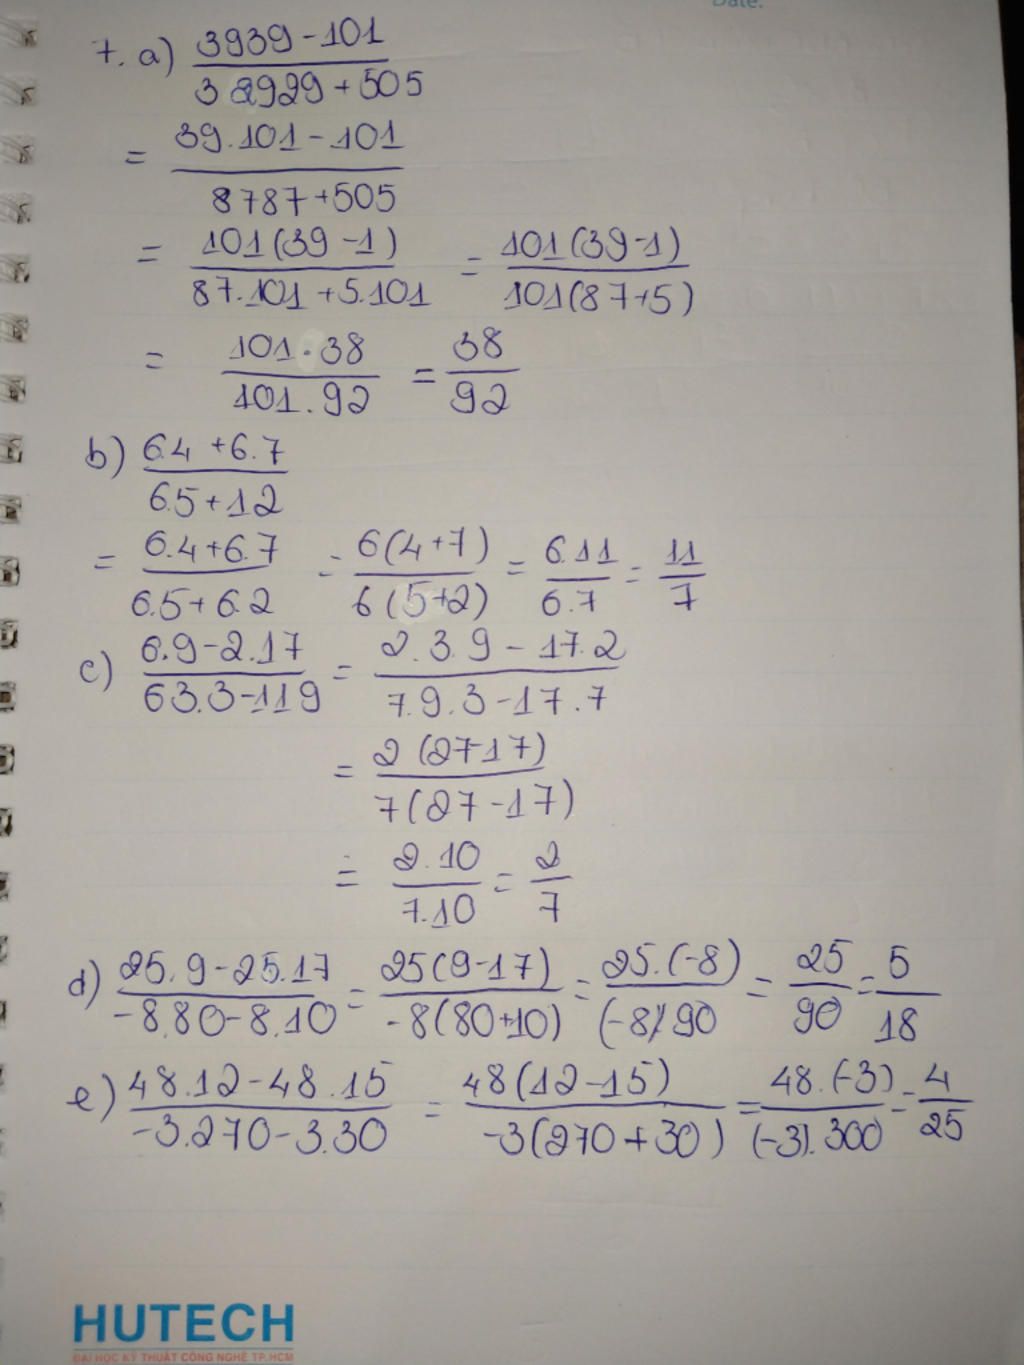 Date:
7. a) 3939-101 / 3 2929+505
= 39.101-101 / 8787+505
= 101(39-1) / 87.101+5.101 = 101(39-1) / 101(87+5)
= 101.38 / 101.92 = 38 / 92
b) 6.4+6.7 / 6.5+12
= 6.4+6.7 / 6.5+6.2 = 6(4+7) / 6(5+2) = 6.11 / 6.7 = 11 / 7
c) 6.9-2.17 / 63.3-119 = 2.3.9-17.2 / 7.9.3-17.7
= 2(27-17) / 7(27-17)
= 2.10 / 7.10 = 2 / 7
d) 25.9-25.17 / -8.80-8.10 = 25(9-17) / -8(80+10) = 25.(-8) / (-8).90 = 25 / 90 = 5 / 18
e) 48.12-48.15 / -3.270-3.30 = 48(12-15) / -3(270+30) = 48.(-3) / (-3).300 = 4 / 25
HUTECH
ĐẠI HỌC KỸ THUẬT CÔNG NGHỆ TP.HCM